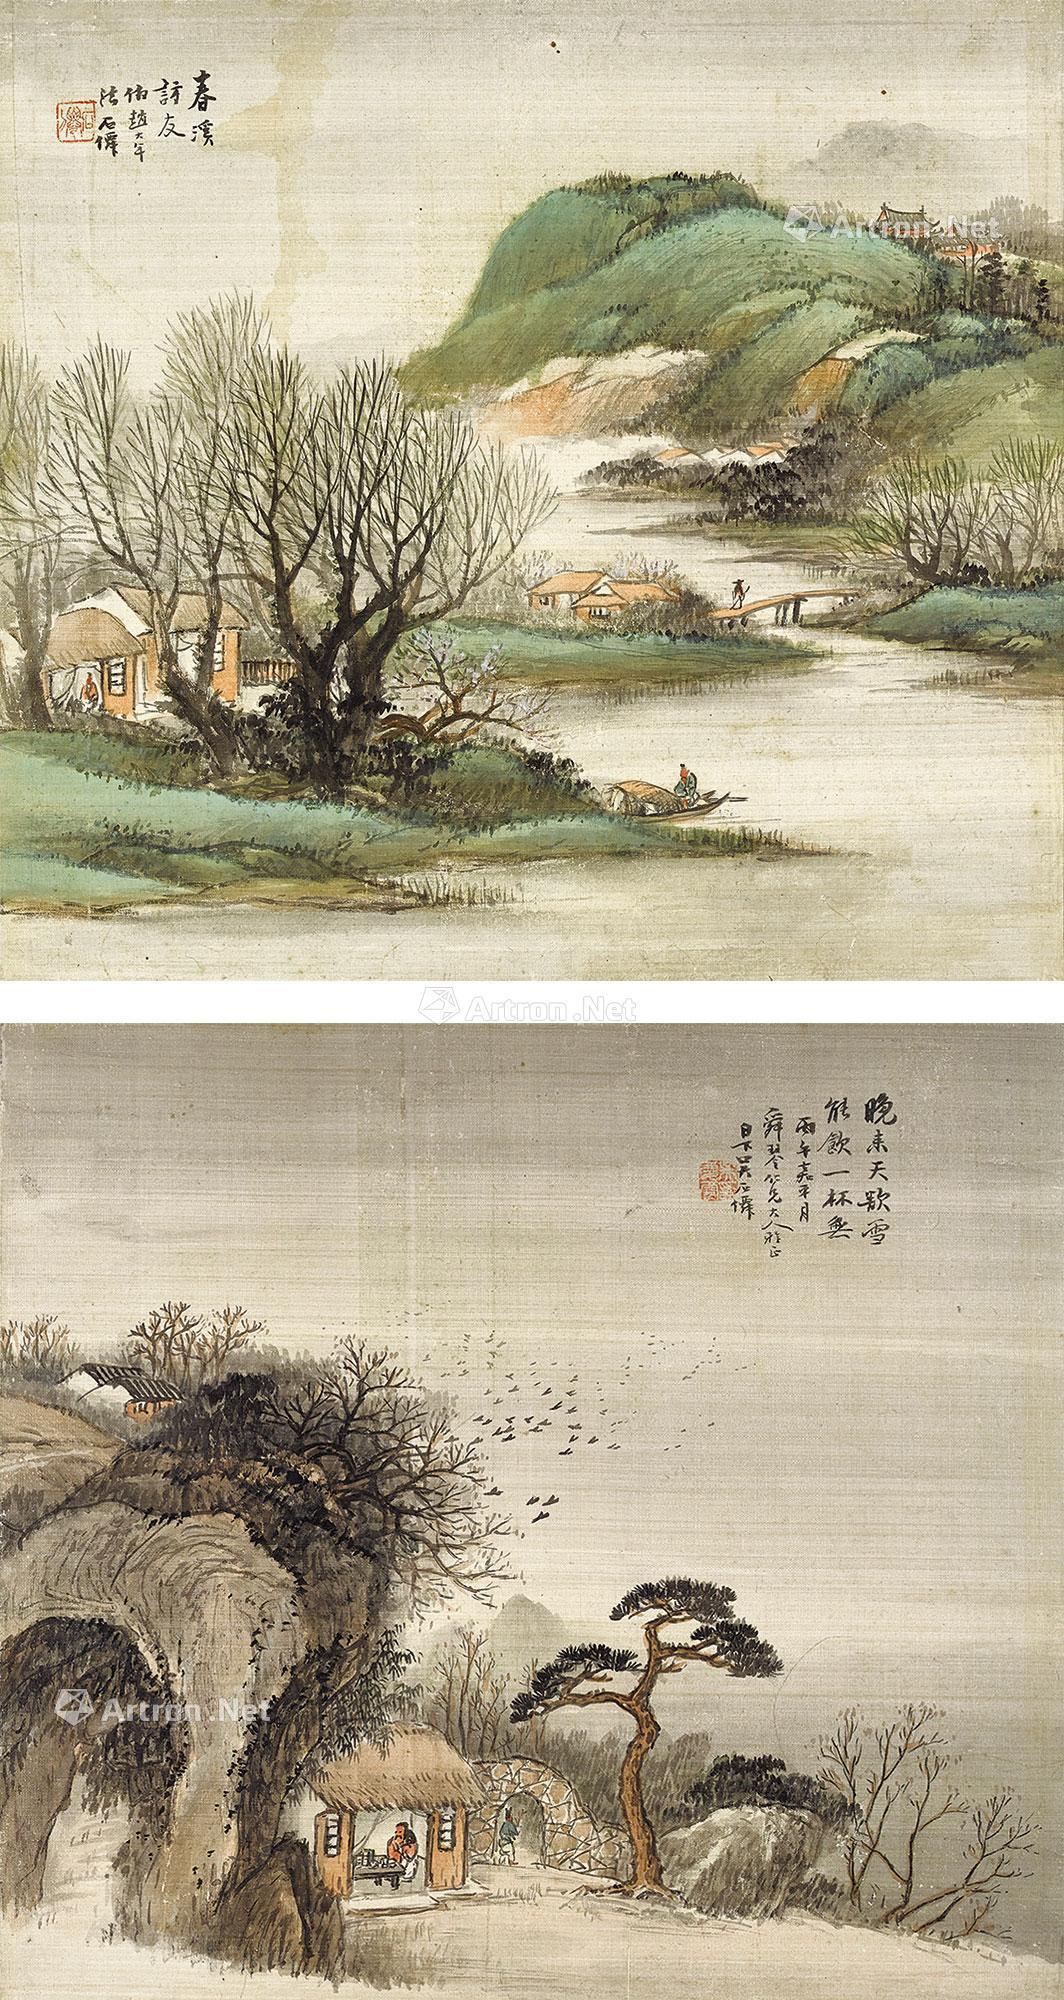 春溪
訪友
仿趙大年
法石僊
Artron.Net
Artron.Net
晚来天欲雪
能飲一杯無
丙午嘉平月
舜琴仁兄大人雅正
日下吴石僊
Artron.Net